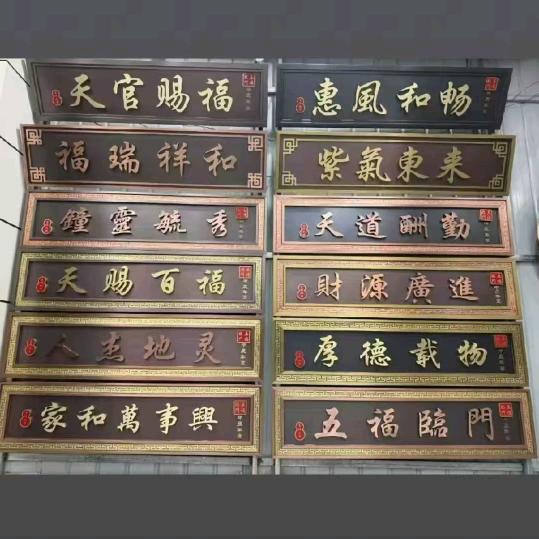 天官赐福
福瑞祥和
鐘靈毓秀
天赐百福
人杰地灵
家和萬事興
惠風和畅
紫氣東来
天道酬勤
財源廣進
厚德載物
五福臨門